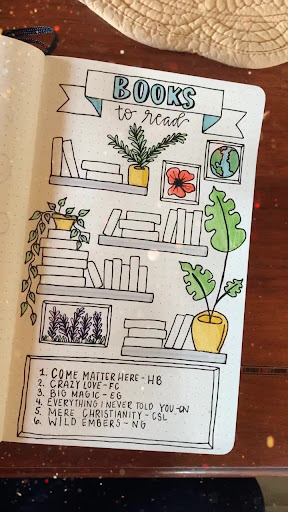 BOOKS
to read
1. COME MATTER HERE - HB
2. CRAZY LOVE - FC
3. BIG MAGIC - EG
4. EVERYTHING I NEVER TOLD YOU - CN
5. MERE CHRISTIANITY - CSL
6. WILD EMBERS - NG